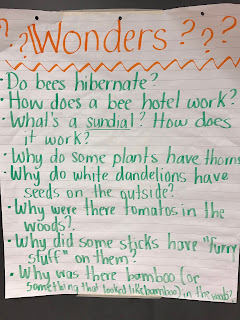 ? ? Wonders ? ? ?
• Do bees hibernate?
• How does a bee hotel work?
• What's a sundial? How does
it work?
• Why do some plants have thorns
• Why do white dandelions have
seeds on the outside?
• Why were there tomatos in the
woods?
• Why did some sticks have "furry
stuff" on them?
• Why was there bamboo (or
something that looked like bamboo) in the woods?